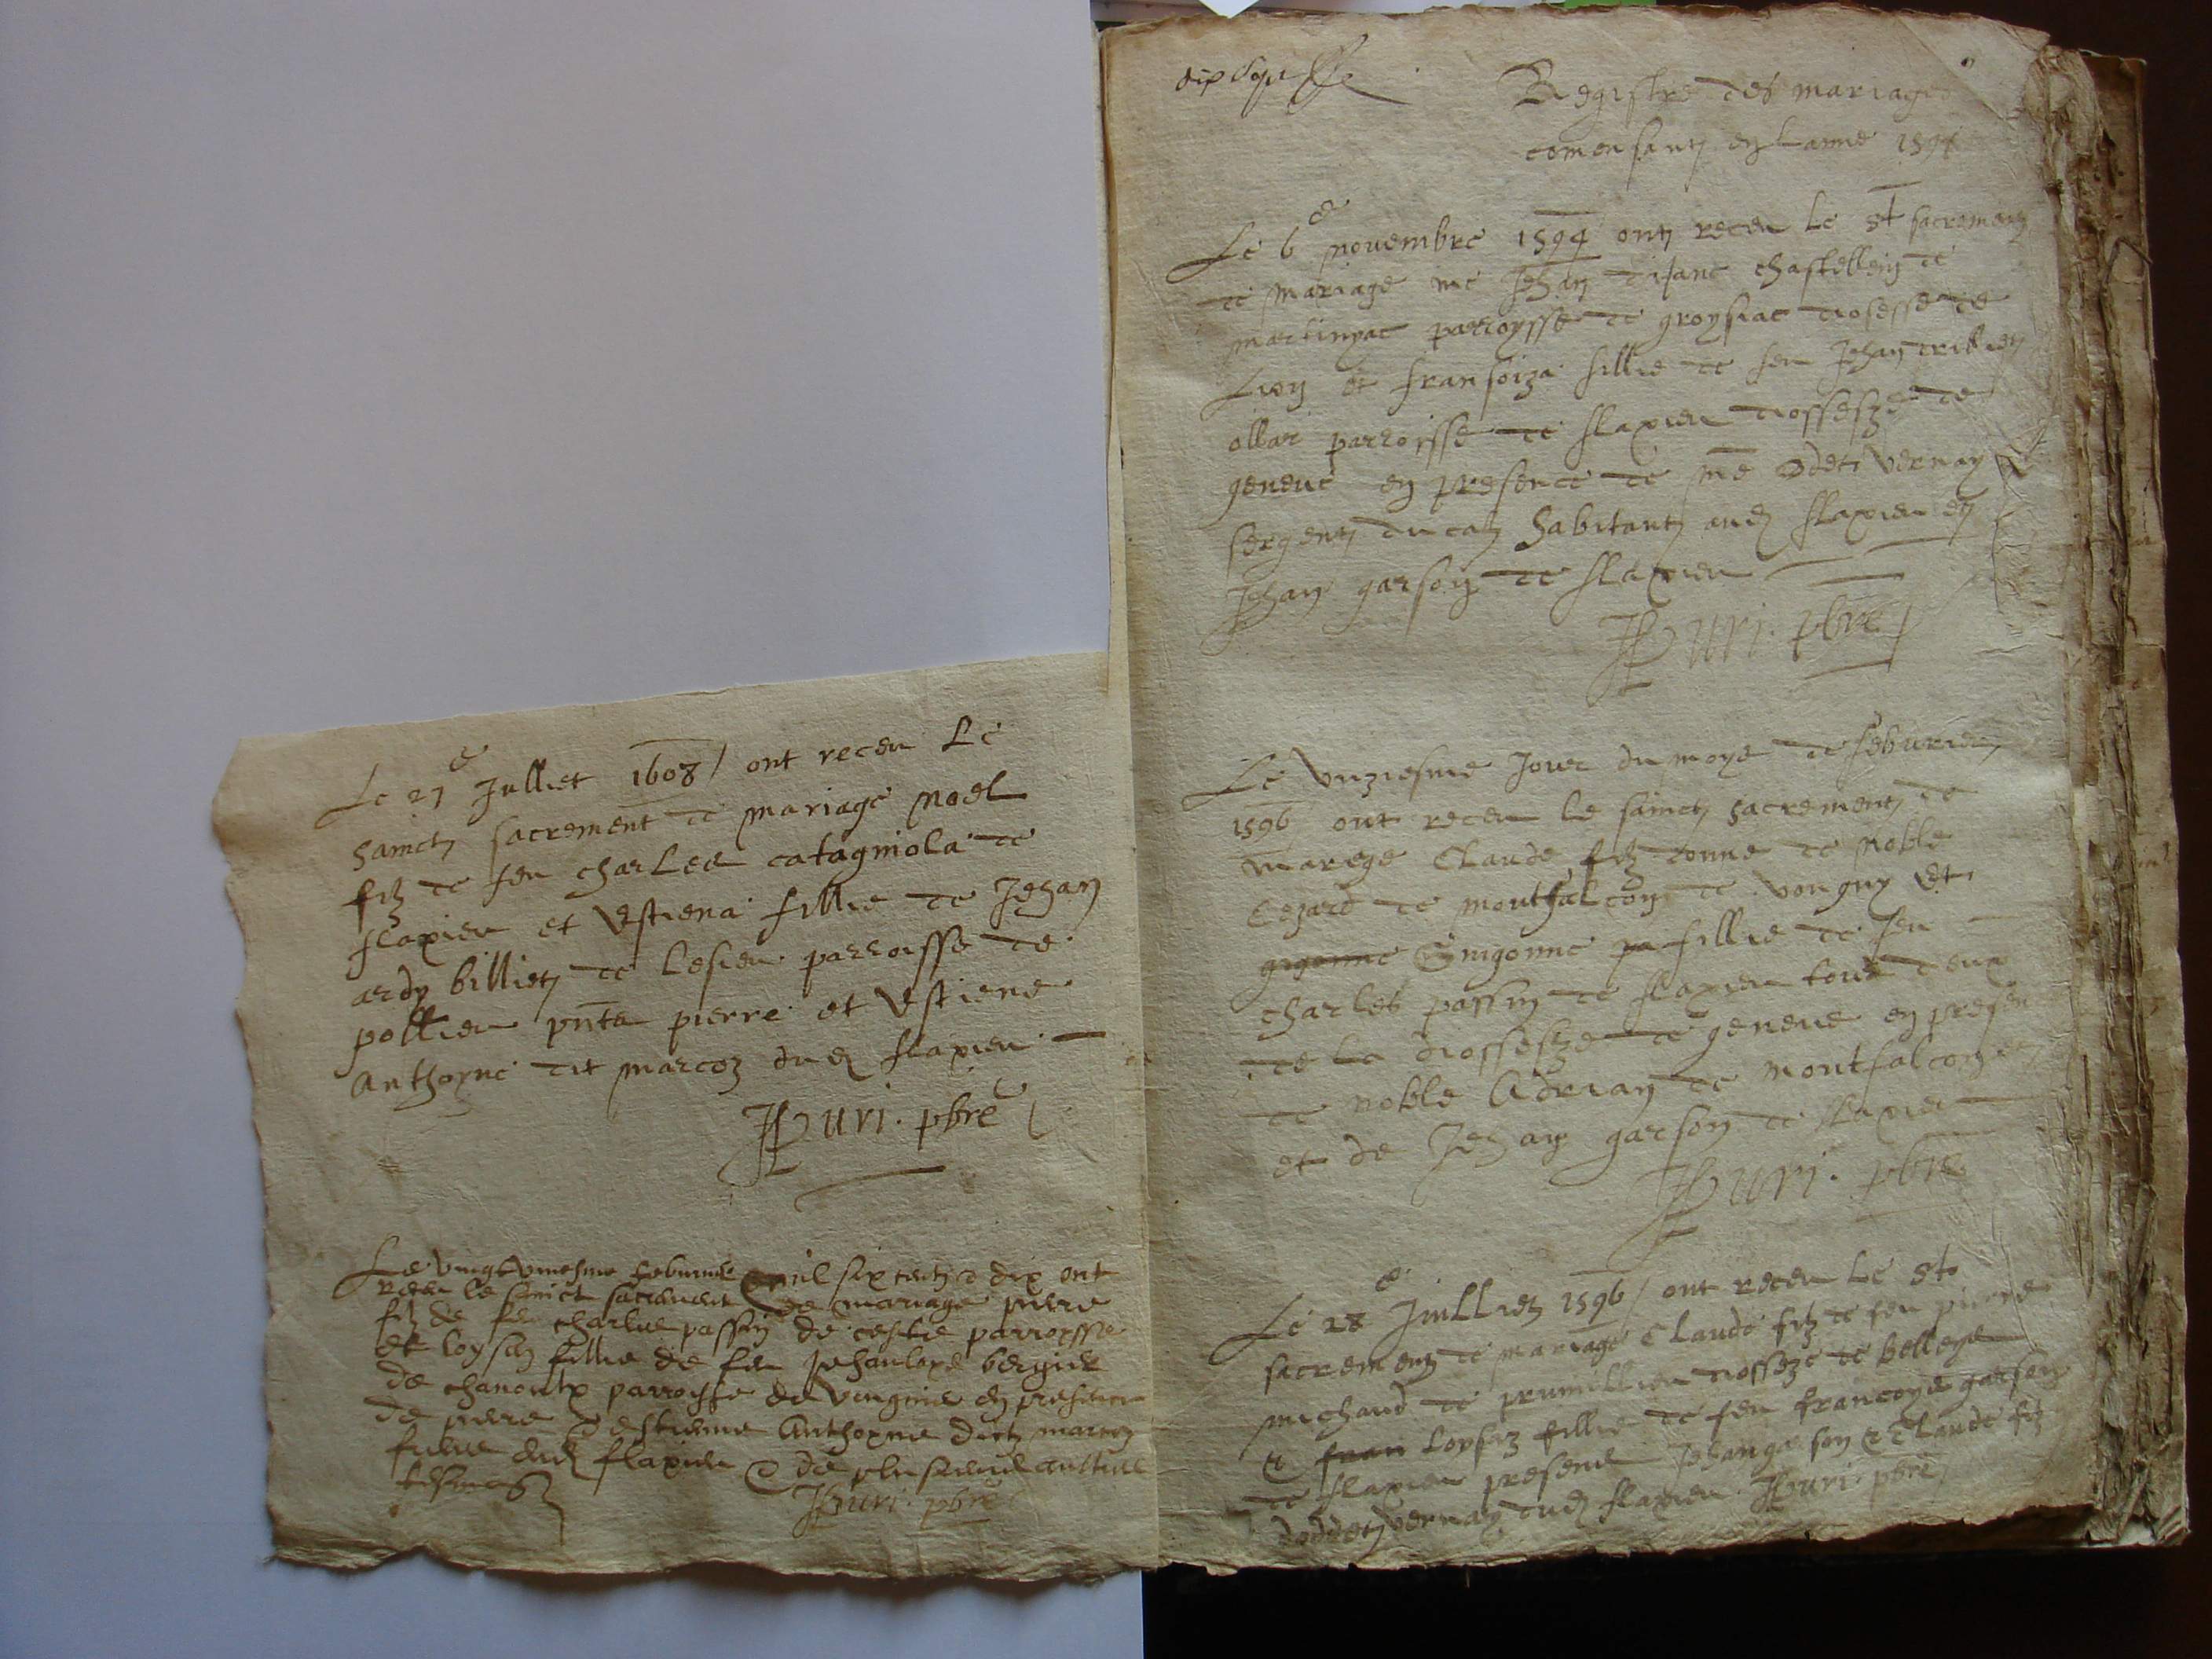 Le 27e Julliet 1608 / ont receu Le
sainct sacrement de mariage noel
filz de feu charles catagniola de
flaxieu et Estiena fillie de Jehan
ardy billiet de Lesieu parroisse de
pollieu pntz pierre et Estiene
Anthoyne dit marcoz dud flaxieu
Puri. pbre
Le vingt uniesme feburier mil six centz & dix ont
receu le sainct sacrement de mariage pierre
filz de feu charles passin de ceste parroysse
et loysa fillie de feu Jehan
de chanoulx parroisse de vongnie en presence
de pierre & estienne Anthoyne dictz marcoz
freres dud flaxieu & de plusieurs aultres
tesmoings
Puri. pbre
dix
Registre des mariages
comensant en Lanne 1594
Le 6e novembre 1594 ont receu Le st sacremant
de mariage me Jehan chastellein de
martinyac parroysse de groysiac diosesse de
Lion et fransoiza fillie de feu Jehan
ollar parroisse de flaxieu diossesze de
geneve en presence de me Odet vernay
sergent ducal habitant aud flaxieu et
Jehan garson de flaxieu
Puri. pbre
Le unziesme Jour du moys de feburier
1596 ont receu le sainct sacrement de
mariege Claude filz donne de noble
Cezard de montfalcon de vongny et
gigonne Guigonne pa fillie de feu
charles passin de flaxieu tous deux
de la diossesze de geneve en presen
de noble Adrian de montfalcon et
et de Jehan garson de flaxieu
Puri. pbre
Le 28e Juilliet 1596 / ont receu Le st
sacrement de mariage Claude filz de feu pierre
michaud de prumillieu diossesze de belleys
& fran Loysaz fillie de feu francoys garson
de flaxieu presens Jehan garson & Claude filz
doddet vernay dud flaxieu Puri. pbre